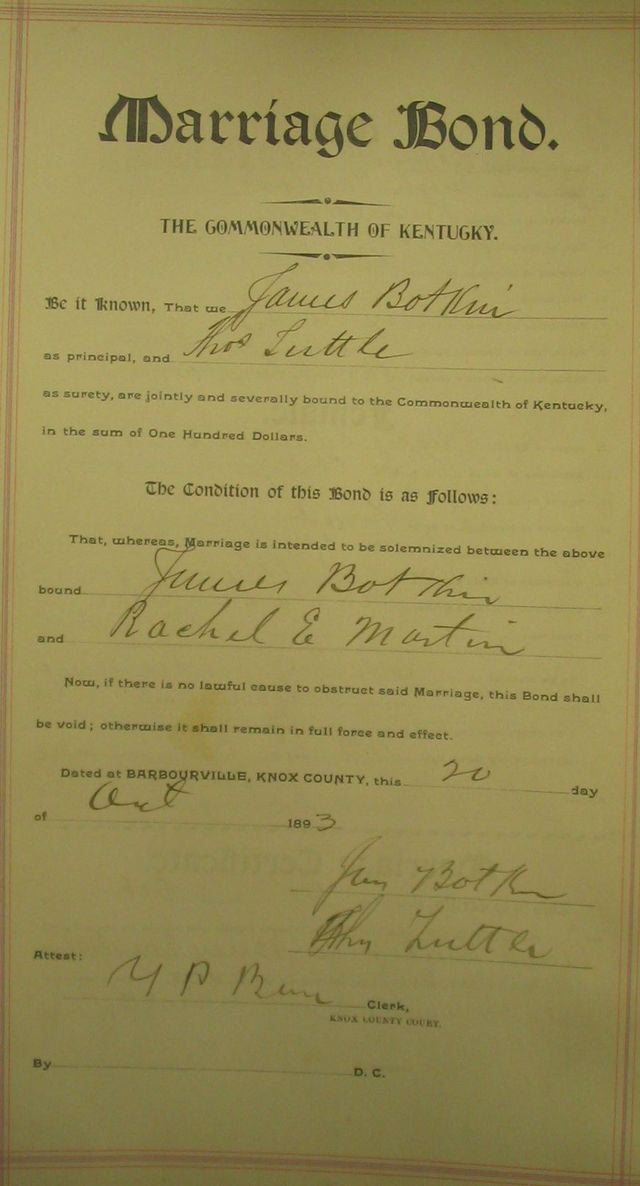 Marriage Bond.
THE COMMONWEALTH OF KENTUCKY.
Be it Known, That we James Botkin
as principal, and Thos Tuttle
as surety, are jointly and severally bound to the Commonwealth of Kentucky,
in the sum of One Hundred Dollars.
The Condition of this Bond is as Follows:
That, whereas, Marriage is intended to be solemnized between the above
bound James Botkin
and Rachel E Martin
Now, if there is no lawful cause to obstruct said Marriage, this Bond shall
be void; otherwise it shall remain in full force and effect.
Dated at BARBOURVILLE, KNOX COUNTY, this 20 day
of Oct 1893
Botkin
Tuttle
Attest:
Clerk,
KNOX COUNTY COURT.
By D. C.